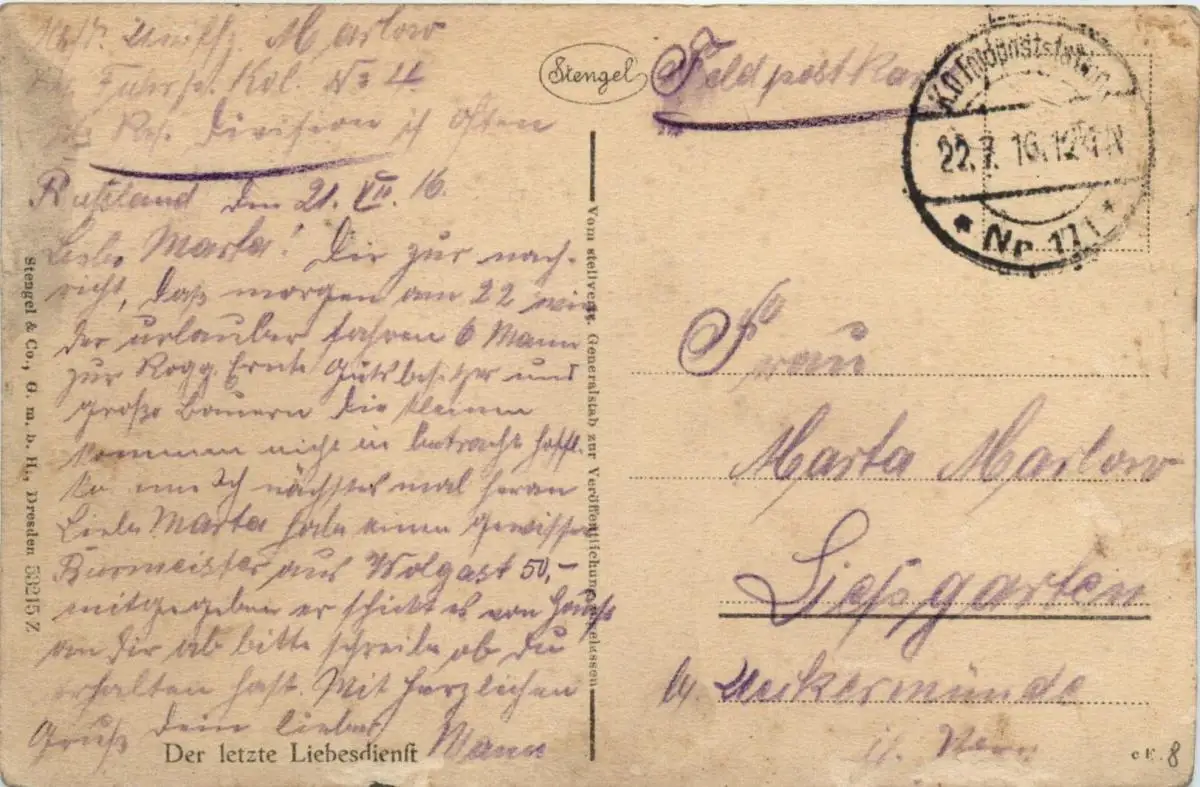 Marlow
Kol. No 4
Res. Division i/ Osten
Rußland den 21. VII. 16.
Liebe Marta! Dir zur nach-
richt, daß morgen am 22 wie
der urlauber fahren 6 Mann
zur Rogg. Ernte Gutsbesitzer und
große Bauern die kleinen
kommen nicht in betracht hoffl.
ko nächstes mal heran
Liebe Marta habe einen gewissen
Burmeister aus Wolgast 50,-
mitgegeben er schickt es von Hause
an dir ab bitte schreibe ob du
erhalten hast. Mit herzlichen
Gruß dein lieber
Mann
Der letzte Liebesdienst
Stengel & Co., G. m. b. H., Dresden 53215 Z
Stengel
Vom stellvertr. Generalstab zur Veröffentlichung zugelassen
Feldpostkar
K.D. Feldpoststation
22.7.16. 12-1 N
* Nr. 171 *
Frau
Marta Marlow
Liepgarten
Uekermünde
i/.
c F. 8